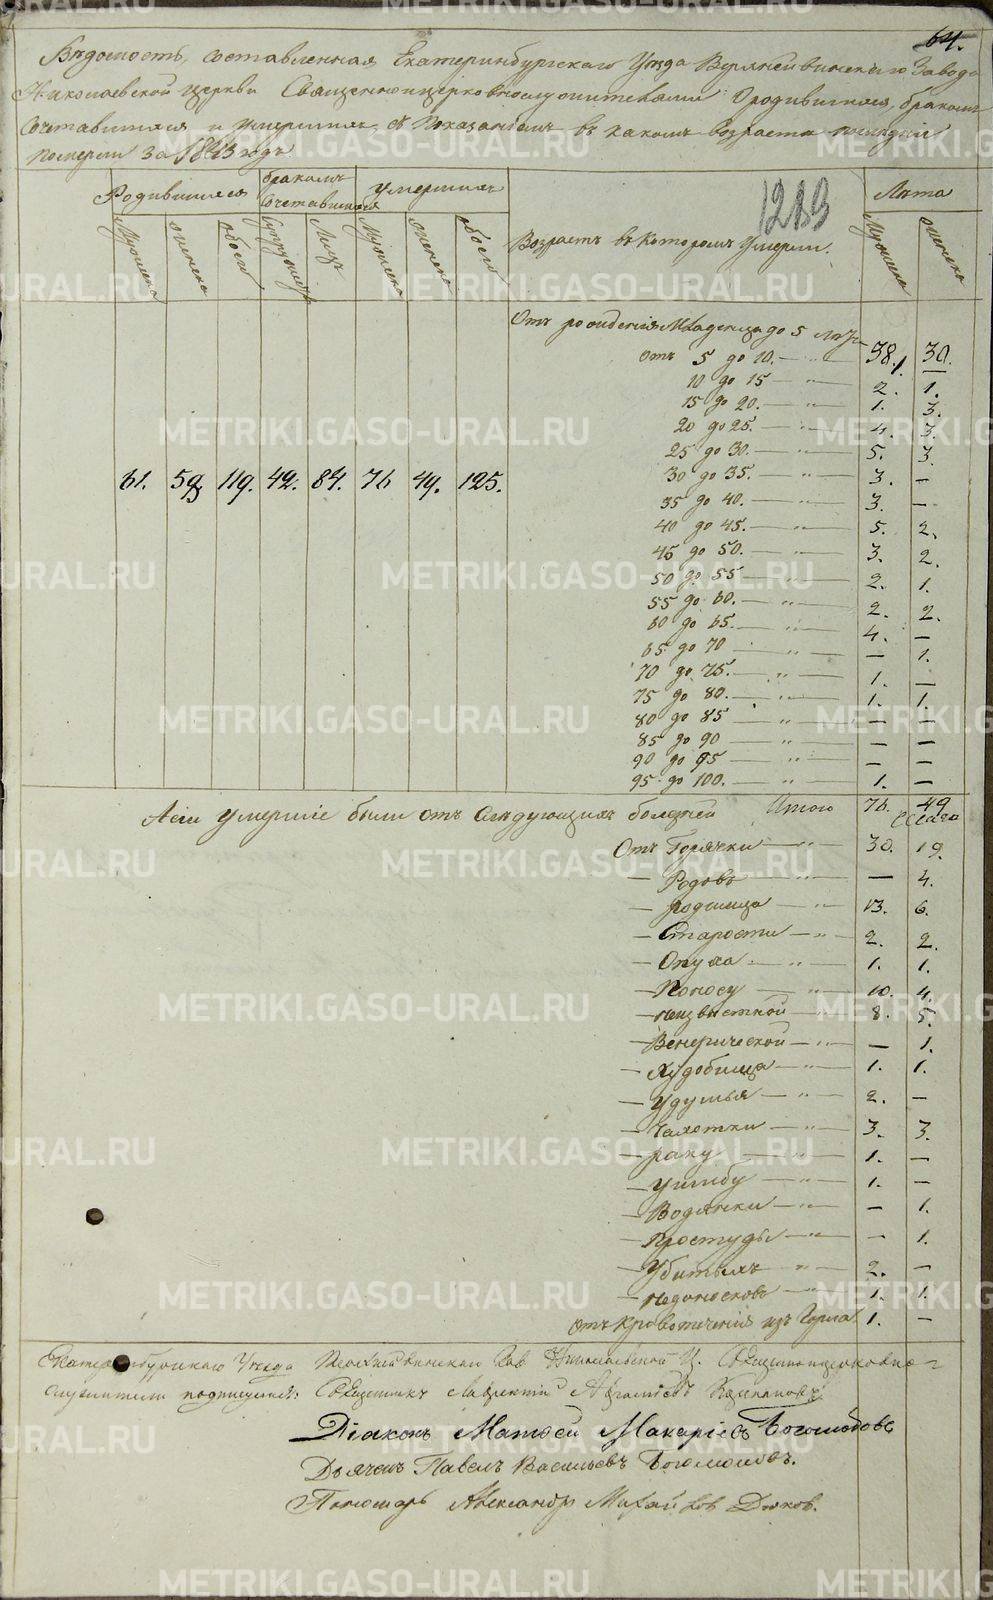 64.
Вѣдомость, составленная Екатеринбургскаго Уѣзда Верхнейвинскаго Завода
Николаевской церкви Священноцерковнослужителями О родившихся, бракомъ
сочетавшихся и умершихъ, съ показаніемъ въ какомъ возрастѣ
померли за 1843 годъ.
1289
Родившихся бракомъ сочетавшихся умершихъ Возрастъ въ которомъ Умерли. Лѣта
Мужеска женска обоего Супружествъ Лицъ Мужеска женска обоего Мужеска женска
Отъ рожденія Младенца до 5 лѣтъ 38. 30.
отъ 5 до 10. — „ — 1. —
10 до 15 — „ — 2. 1.
15 до 20. — „ — 1. 3.
20 до 25. — „ — 4. 3.
25 до 30. — „ — 5. 3.
61. 59. 119. 42. 84. 76 49. 125.
30 до 35. — „ — 3. —
35 до 40. — „ — 3. —
40 до 45. — „ — 5. 2.
45 до 50. — „ — 3. 2.
50 до 55 — „ — 2. 1.
55 до 60. — „ — 2. 2.
60 до 65. — „ — 4. —
65 до 70 — „ — — 1.
70 до 75. — „ — 1. —
75 до 80. — „ — 1. 1.
80 до 85 — „ — — —
85 до 90 — „ — — —
90 до 95 — „ — — —
95 до 100. — „ — 1. —
А сіи умершіе были отъ Слѣдующихъ болезней Итого 76. 49
Отъ Горячки — „ — 30. 19.
— Родовъ — „ — — 4.
— Родимца — „ — 13. 6.
— Старости — „ — 2. 2.
— Опуха — „ — 1. 1.
— Поносу — „ — 10. 4.
— неизвѣстной — „ — 8. 5.
— Венерической — „ — — 1.
— Худобища — „ — 1. 1.
— Удушья — „ — 2. —
— Чахотки — „ — 3. 3.
— раку — „ — 1. —
— Ушибу — „ — 1. —
— Водянки — „ — — 1.
— Простуды — „ — — 1.
— Убитыхъ — „ — 2. —
— недоносковъ — „ — 1. 1.
отъ кровотеченія изъ Горла 1. —
Екатеринбургскаго Уѣзда Верхнейвинскаго Зав Николаевской Ц. Священноцерковно=
служители подписуемся: Священникъ Лаврентій
Діаконъ Матѳей Макаріевъ Богомоловъ
Дьячекъ Павелъ Васильевъ Богомоловъ.
Пономарь Александръ Михайловъ
METRIKI.GASO-URAL.RU